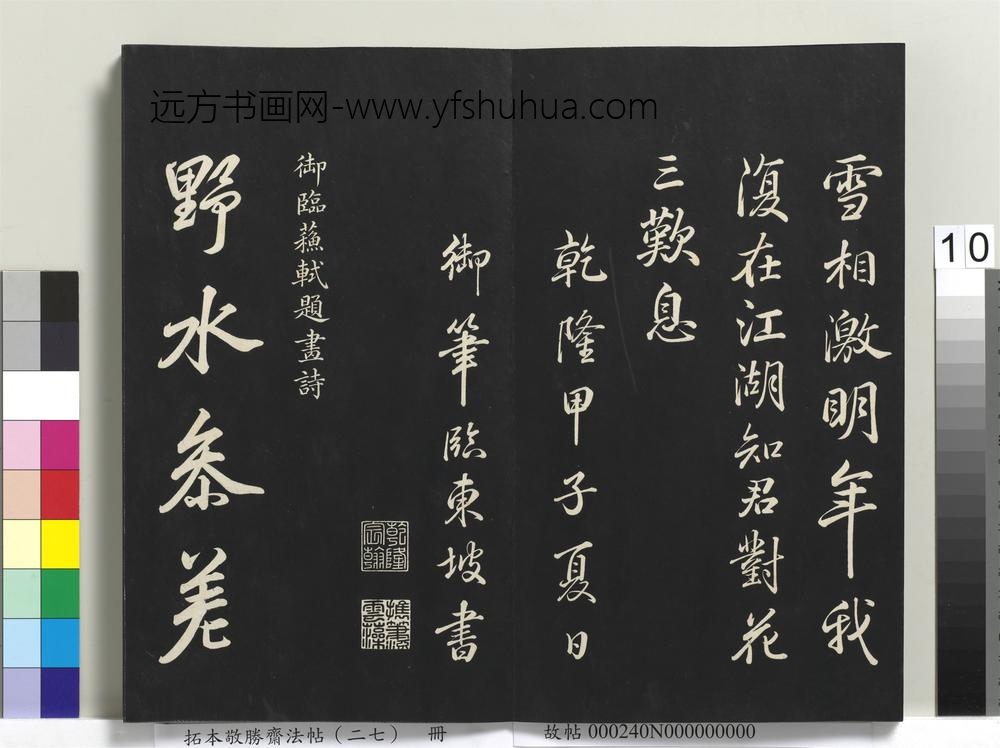 远方书画网-www.yfshuhua.com
雪相激明年我
復在江湖知君對花
三歎息
乾隆甲子夏日
御筆臨東坡書
乾隆
宸翰
御臨蘓軾題畫詩
野水參差
10
拓本敬勝齋法帖（二七） 冊
故帖 000240N000000000